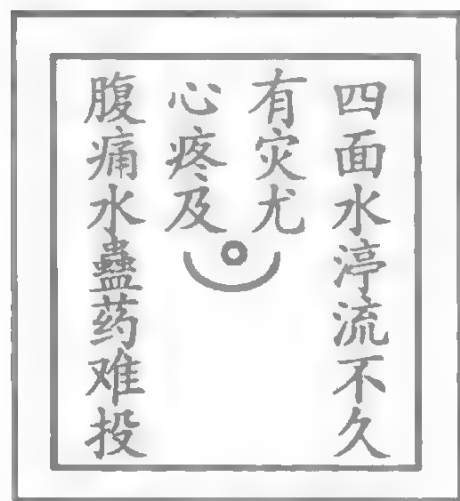 四面水渟流不久
有灾尤
心疼及
腹痛水蠱药难投